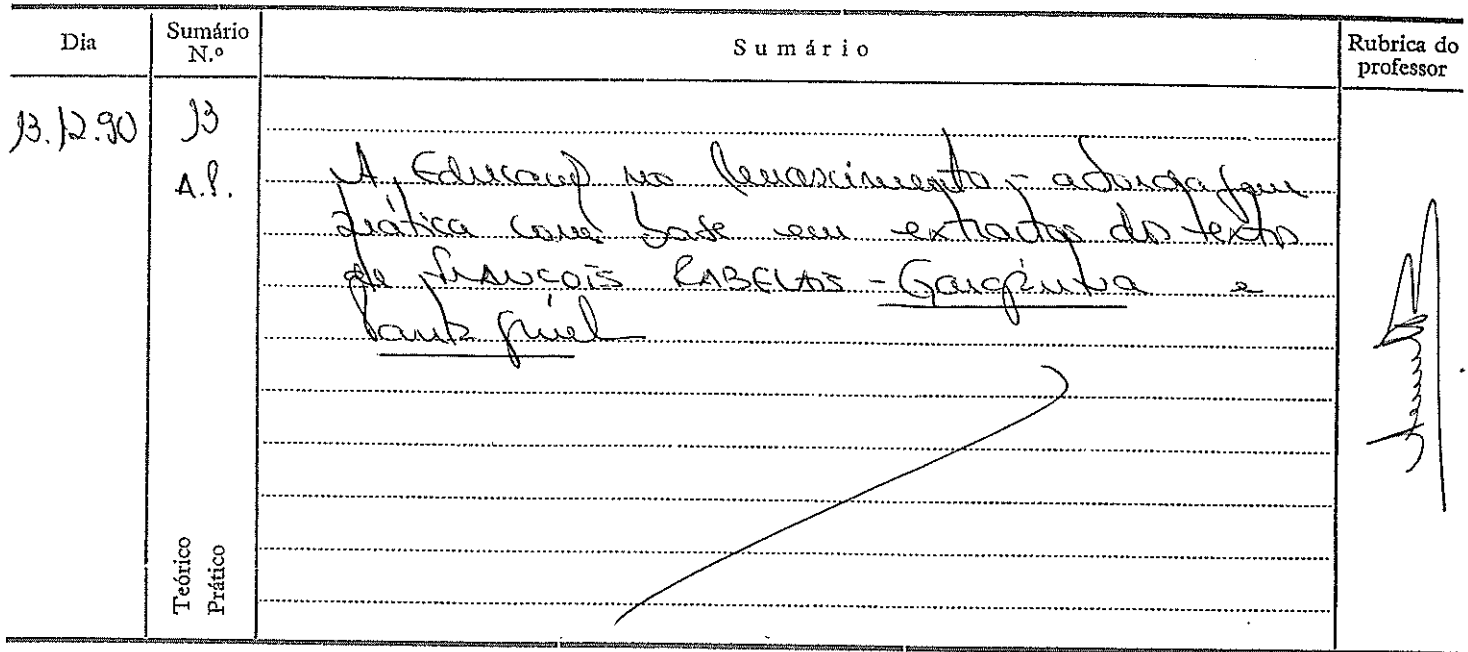 Dia
Sumário N.º
Sumário
Rubrica do professor
13.12.90
13
A.P.
A Educação no Renascimento - abordagem
prática com base em extractos do texto
de FRANÇOIS RABELAIS - Gargântua e
Pantagruel
Teórico
Prático